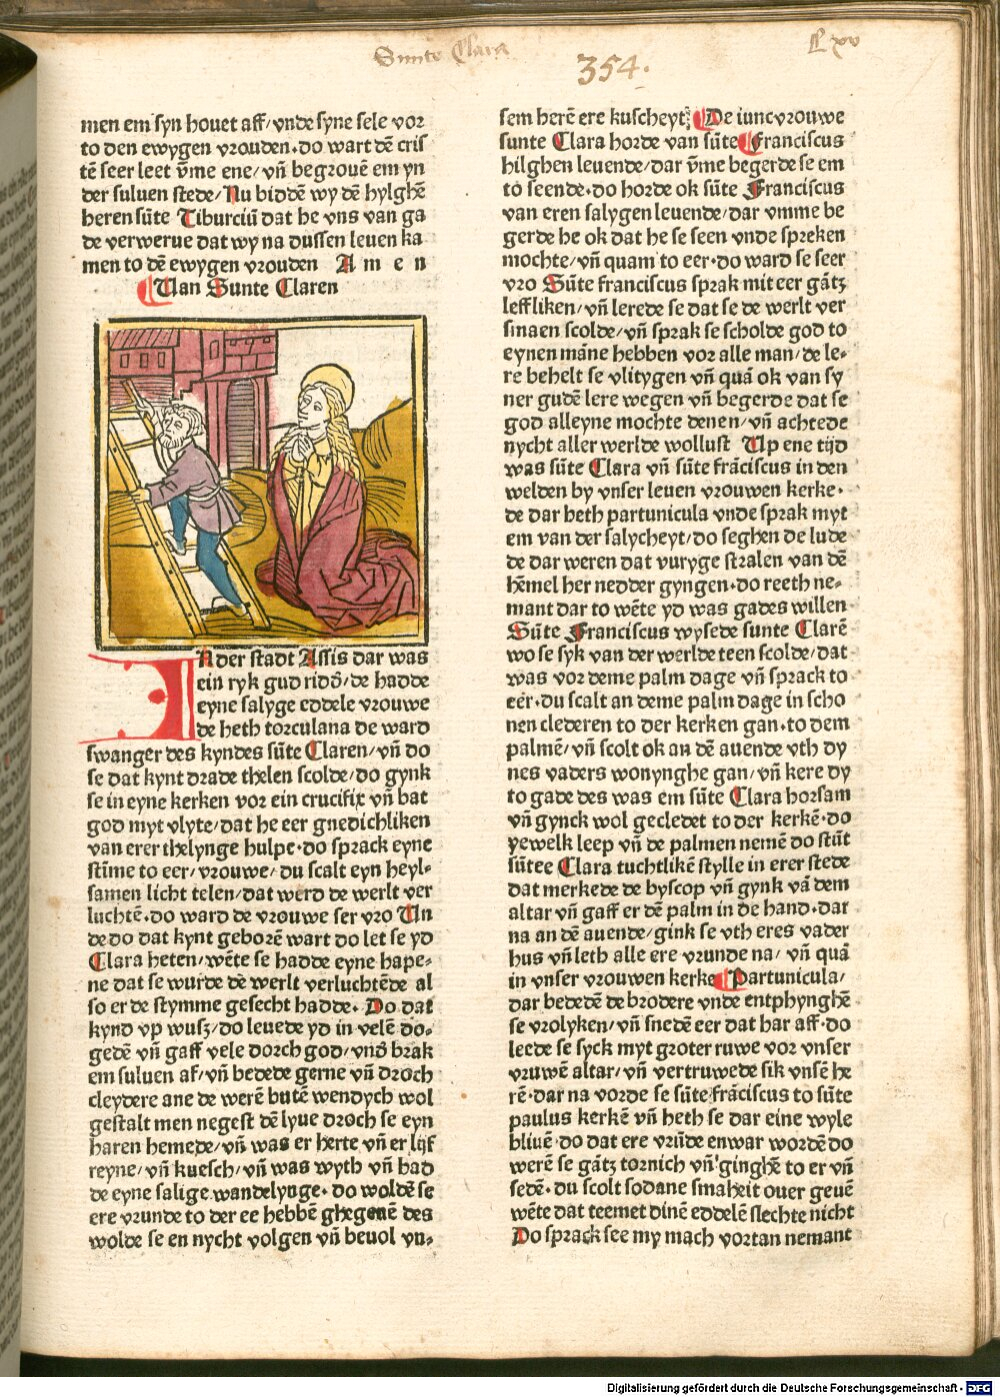 Sunte Clara
Lxv
354.
men em syn houet aff/ vnde syne sele vor
to den ewygen vrouden. do wart dē cris
tē seer leet vm̄e ene/ vn̄ begrouē em yn
der suluen stede/ Nu biddē wy dē hylghē
heren sūte Tiburciū dat he vns van ga
de verwerue dat wy na dussen leuen ka
men to dē ewygen vrouden A m e n
Uan Sunte Claren
IN der stadt Assis dar was
ein ryk gud riddō/ de hadde
eyne salyge eddele vrouwe
de heth torculana de ward
swanger des kyndes sūte Claren/ vn̄ do
se dat kynt drade thelen scolde/ do gynk
se in eyne kerken vor ein crucifix vn̄ bat
god myt vlyte/ dat he eer gnedichliken
van erer thelynge hulpe. do sprack eyne
stīme to eer/ vrouwe/ du scalt eyn heyl-
samen licht telen/ dat werd de werlt ver
luchtē. do ward de vrouwe ser vro Un
de do dat kynt geborē wart do let se yd
Clara heten/ wēte se hadde eyne hape-
ne dat se wurde dē werlt verluchtēde al
so er de stymme gesecht hadde. Do dat
kynd vp wusz/ do leuede yd in velē do-
gedē vn̄ gaff vele dorch god/ vnd brak
em suluen af/ vn̄ bedede gerne vn̄ droch
cleydere ane de werē butē wendych wol
gestalt men negest dē lyue droch se eyn
haren hemede/ vn̄ was er herte vn̄ er lijf
reyne/ vn̄ kuesch/ vn̄ was wyth vn̄ had
de eyne salige wandelynge. do woldē se
ere vrunde to der ee hebbē ghegeuē des
wolde se en nycht volgen vn̄ beuol vn-
sem herē ere kuscheyt. De iuncvrouwe
sunte Clara horde van sūte Franciscus
hilghen leuende/ dar vm̄e begerde se em
to seende. do horde ok sūte Franciscus
van eren salygen leuende/ dar vmme be
gerde he ok dat he se seen vnde spreken
mochte/ vn̄ quam to eer. do ward se seer
vro Sūte franciscus sprak mit eer gātz
leffliken/ vn̄ lerede se dat se de werlt ver
smaen scolde/ vn̄ sprak se scholde god to
eynen māne hebben vor alle man/ de le-
re behelt se vlitygen vn̄ quā ok van sy
ner gudē lere wegen vn̄ begerde dat se
god alleyne mochte denen/ vn̄ achtede
nycht aller werlde wollust Up ene tijd
was sūte Clara vn̄ sūte frāciscus in den
welden by vnser leuen vrouwen kerke.
de dar heth partunicula vnde sprak myt
em van der salycheyt/ do seghen de lude
de dar weren dat vuryge stralen van dē
hēmel her nedder gyngen. do reeth ne-
mant dar to wēte yd was gades willen
Sūte Franciscus wysede sunte Clarē
wo se syk van der werlde teen scolde/ dat
was vor deme palm dage vn̄ sprack to
eer. du scalt an deme palm dage in scho
nen clederen to der kerken gan. to dem
palmē/ vn̄ scolt ok an dē auende vth dy
nes vaders wonynghe gan/ vn̄ kere dy
to gade des was em sūte Clara horsam
vn̄ gynck wol gecledet to der kerkē. do
yewelk leep vn̄ de palmen nemē do stūt
sūtee Clara tuchtlikē stylle in erer stede
dat merkede de byscop vn̄ gynk vā dem
altar vn̄ gaff er dē palm in de hand. dar
na an dē auende/ gink se vth eres vader
hus vn̄ leth alle ere vrunde na/ vn̄ quā
in vnser vrouwen kerke Partunicula/
dar bededē de brodere vnde entphynghē
se vrolyken/ vn̄ snedē eer dat har aff. do
leede se syck myt groter ruwe vor vnser
vruwē altar/ vn̄ vertruwede sik vnsē he
rē. dar na vorde se sūte frāciscus to sūte
paulus kerkē vn̄ heth se dar eine wyle
bliuē. do dat ere vrūde enwar wordē do
werē se gātz tornich vn̄ ginghē to er vn̄
sedē. du scolt sodane smaheit ouer geuē
wēte dat teemet dinē eddelē slechte nicht
Do sprack see my mach vortan nemant
Digitalisierung gefördert durch die Deutsche Forschungsgemeinschaft - DFG